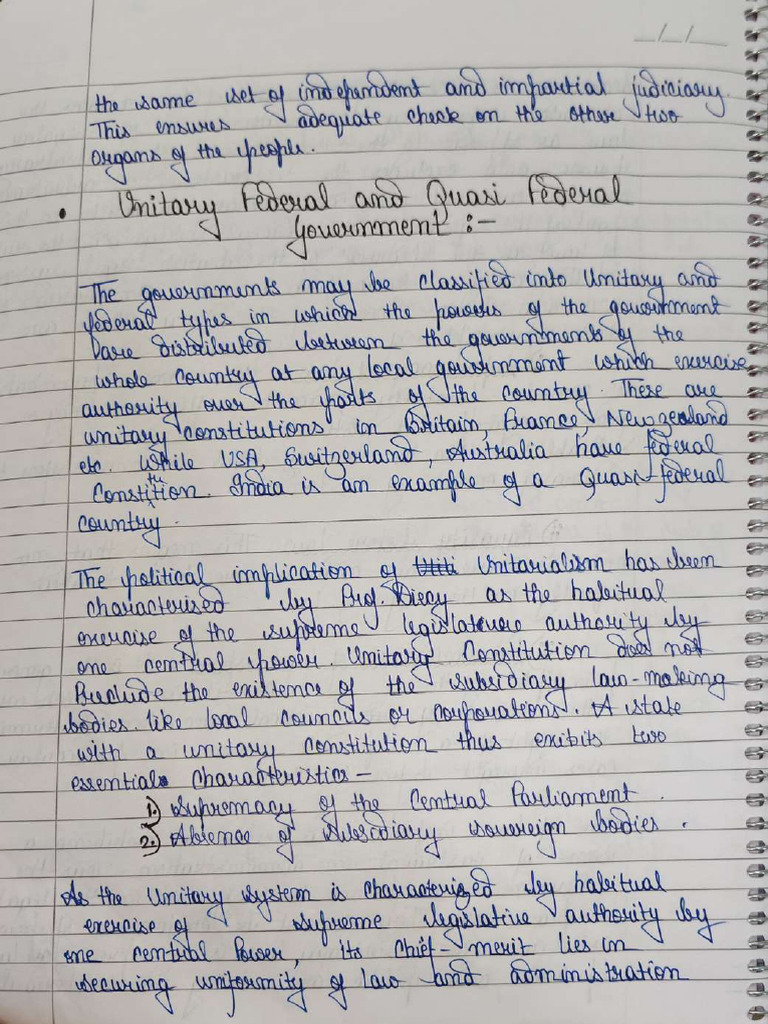 the same set of independent and impartial judiciary.
This ensures adequate check on the other two
organs of the people.
• Unitary Federal and Quasi Federal
Government :-
The governments may be classified into Unitary and
federal types in which the powers of the government
are distributed between the governments of the
whole country at any local government which exercise
authority over the parts of the country. There are
unitary constitutions in Britain, France, Newzealand
etc. While USA, Switzerland, Australia have federal
Constitution. India is an example of a Quasi-federal
country.
The political implication of Unitarialism has been
characterised by Prof. Dicey as the habitual
exercise of the supreme legislature authority by
one central power. Unitary Constitution does not
Preclude the existence of the subsidiary law-making
bodies like local councils or corporations. A state
with a unitary constitution thus exibits two
essential characteristics -
1.) Supremacy of the Central Parliament.
2.) Absence of subsidiary sovereign bodies.
As the Unitary system is characterized by habitual
exercise of supreme legislative authority by
one central Power, its chief-merit lies in
securing uniformity of law and administration